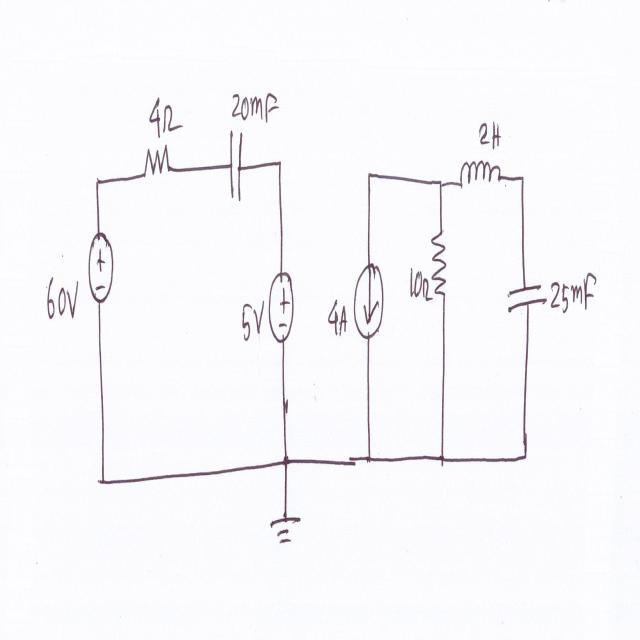 4Ω
20mF
2H
60V
5V
4A
10Ω
25mF